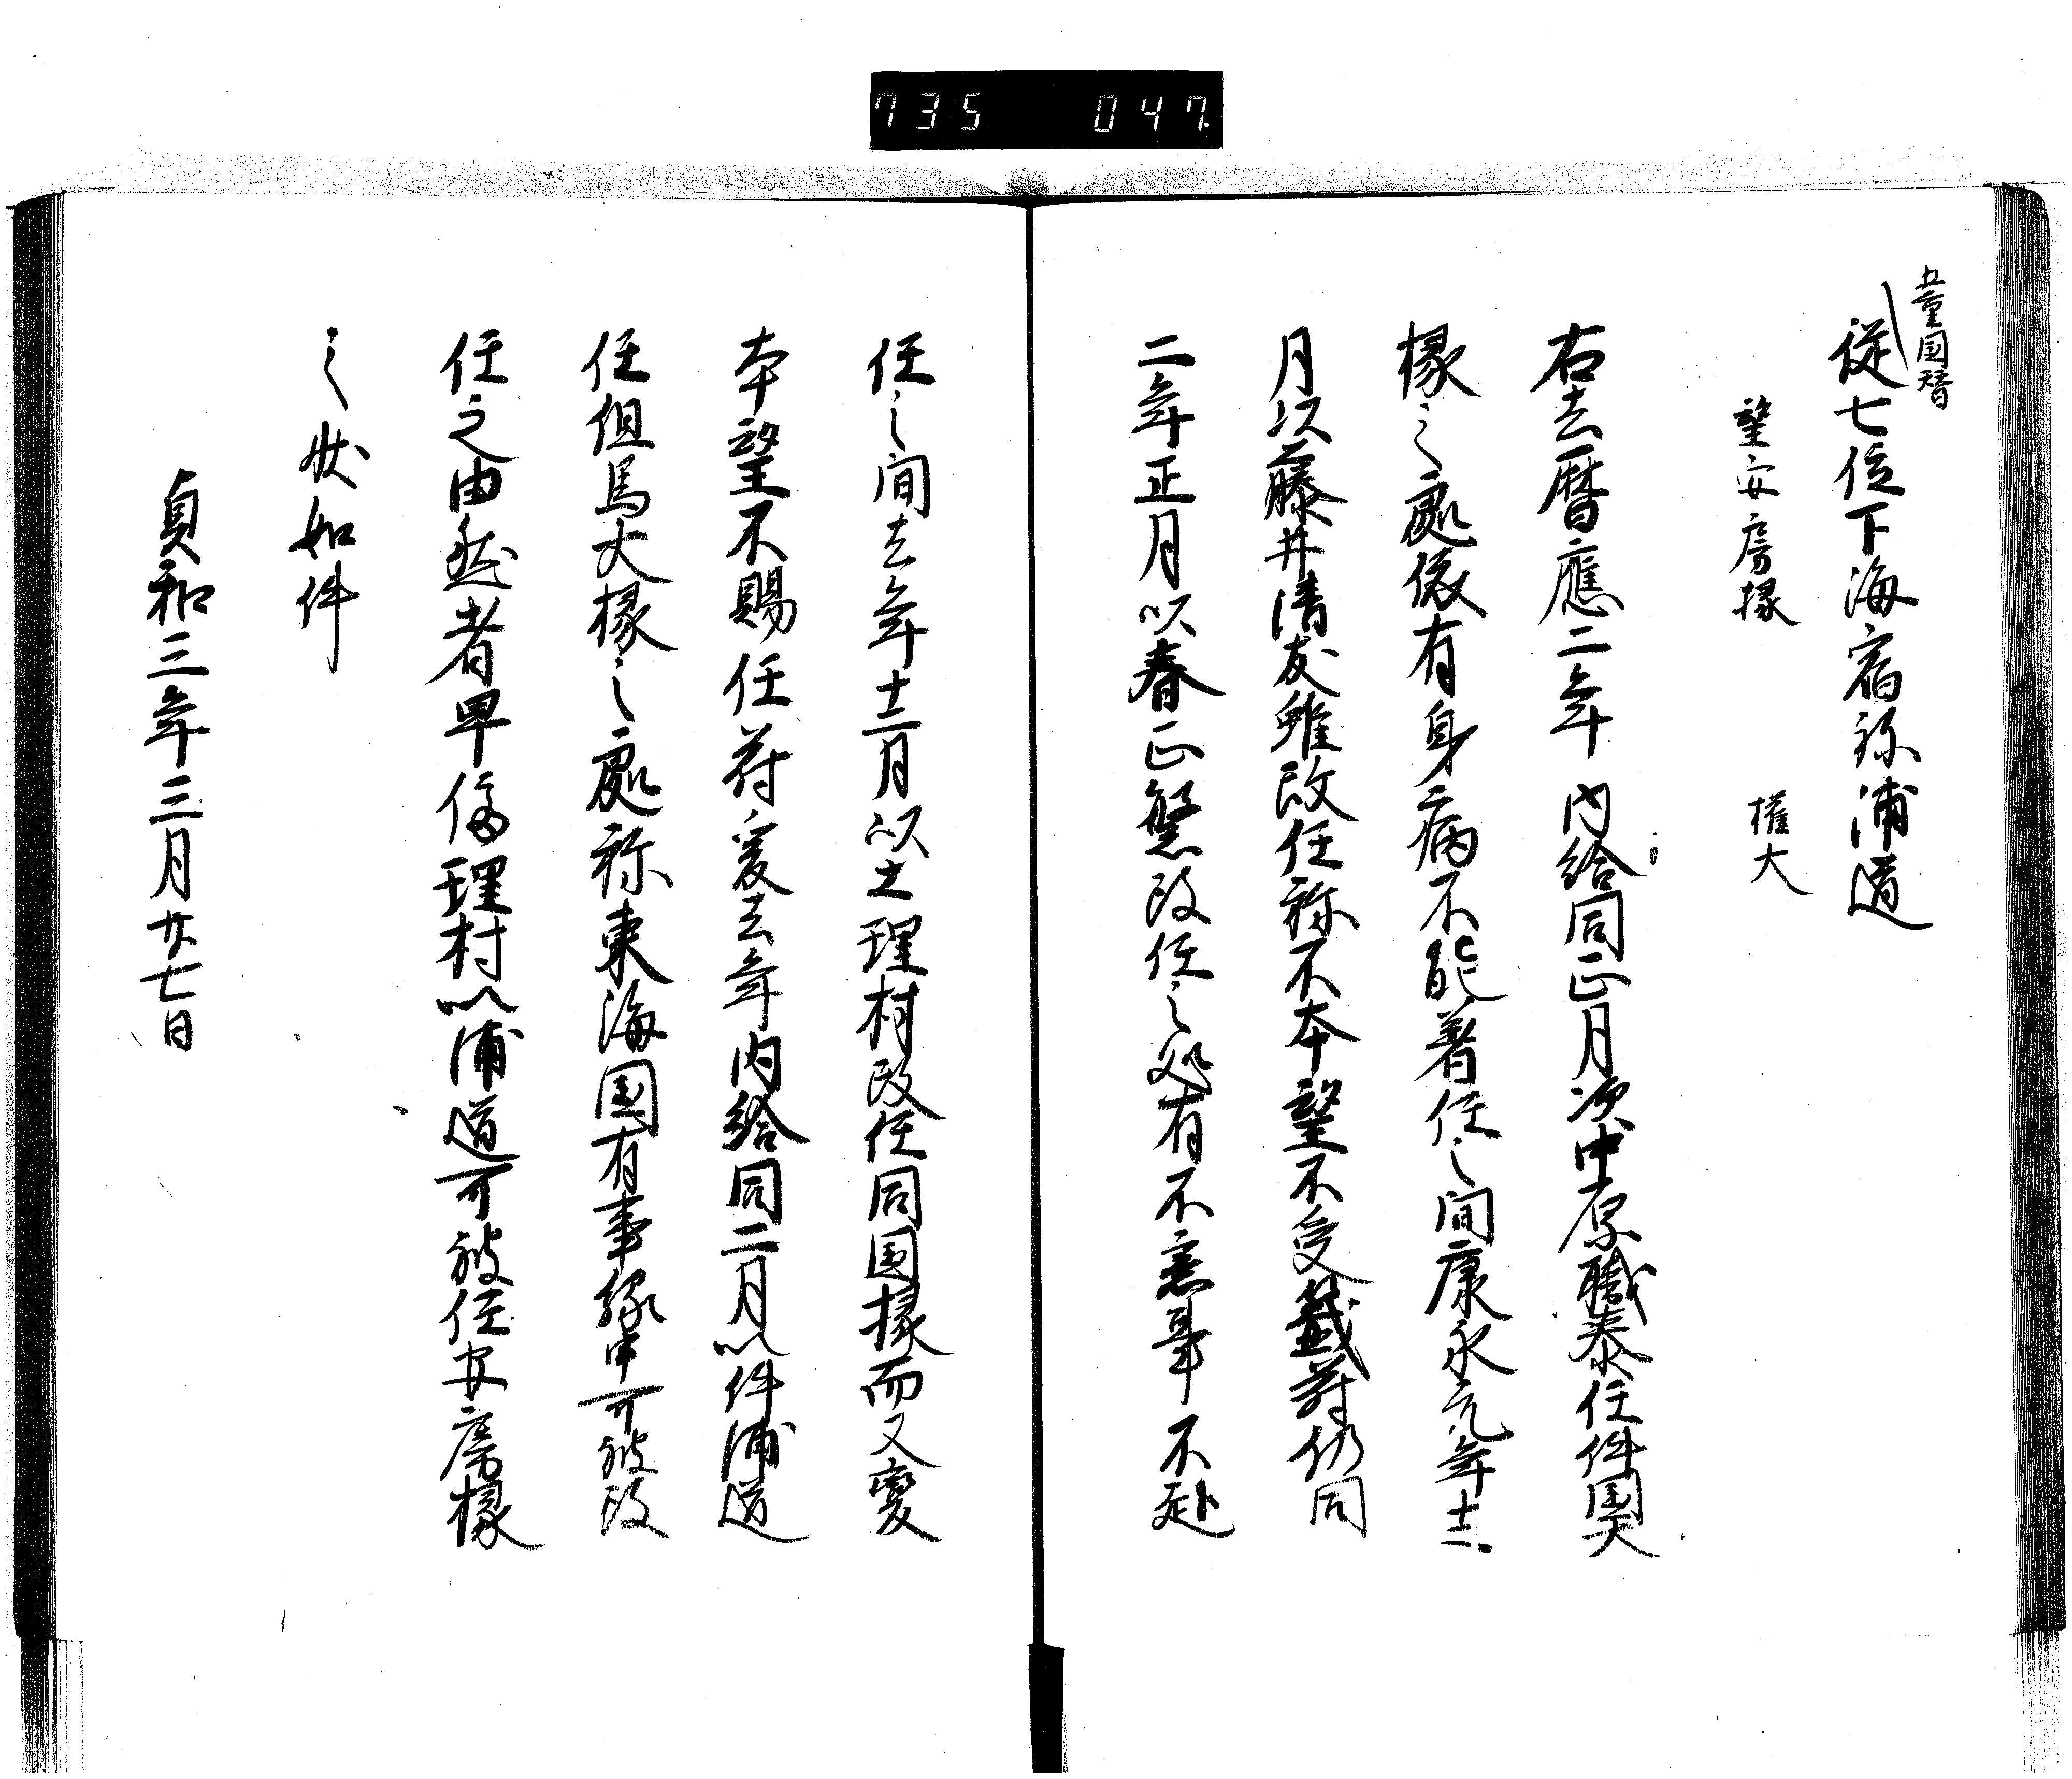 735 047.
五重国替
従七位下海宿祢浦道
望安房掾 權大
右去暦應二年内給同正月以中原職泰任件国大
掾之處依有身病不能着任之間康永元年十二
月以藤井清友雖改任称不本望不受籤符仍同
二年正月以春正繁改任之処有不慮事不赴
任之間去年十二月以土理村改任同国掾而又変
本望不賜任符爰去年内給同二月以件浦道
任但馬大掾之處称東海国有事縁申可被改
任之由然者早停理村以浦道可被任安房掾
之状如件
貞和三年三月廿七日